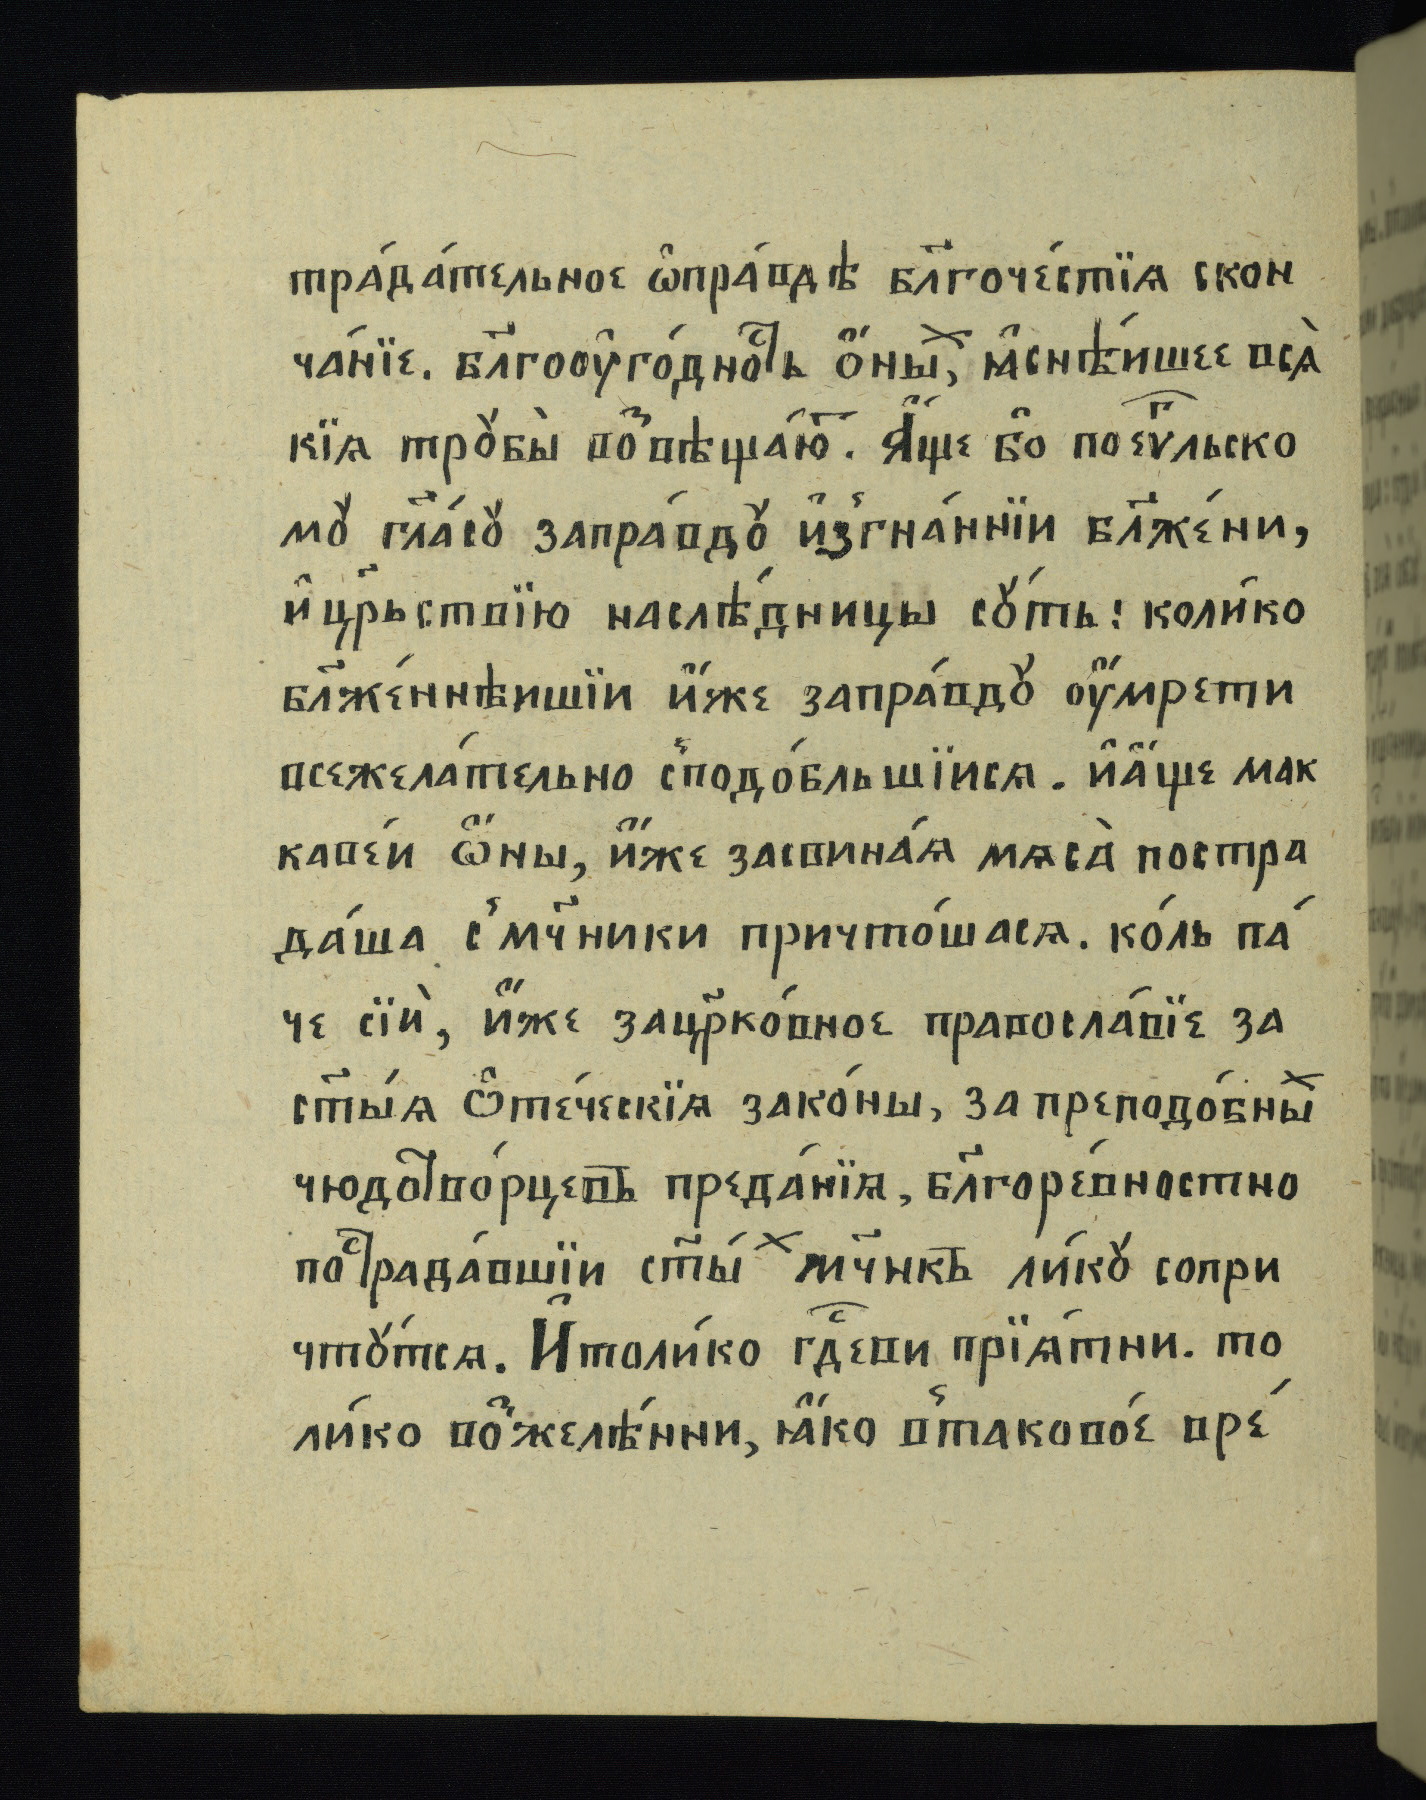 тра́да́тельное ѡ҆пра́вдѣ бл҃гоче́стїѧ скон
ча́нїе. бл҃гооу҆го́дноⷭ҇ть о҆́ныⷯ, ꙗ҆снѣ́ишее всѧ̀
кїѧ трꙋбы̀ воⷥ҇вѣща́юⷮ. А҆́ще бо҆ поеѵⷢ҇льско
мꙋ гл҃а́сꙋ запра́вдꙋ и҆з̾гна́ннїи бл҃же́ни,
и҆ цр҃ьствїю наслѣ́дницы сꙋ́ть: коли́ко
бл҃же́ннѣишїи и҆́же запра́вдꙋ оу҆́мрети
всежела́тельно с̾подо́бльшїисѧ. и҆а҆́ще мак
каве́и ѡ҆́ны, и҆́же засвина́ѧ мѧса̀ постра
да́ша с̾ мч҃ники причто́шасѧ. ко́ль па́
че сїѝ, и҆́же зацр҃ко́вное правосла́вїе за
ст҃ы́ѧ ѻ҆те́ческїѧ зако́ны, за преподо́бныⷯ
чюдотво́рцевъ преда́нїѧ, бл҃горе́вностно
поⷭ҇трада́вшїи ст҃ы́ⷯ мч҃нкъ ли́кꙋ сопри
чтꙋ́тсѧ. И҆толи́ко гдⷭ҇еви прїѧ́тни. то
ли́ко воⷥ҇желѣ́нни, ꙗ҆́ко в̾таково́е вре́